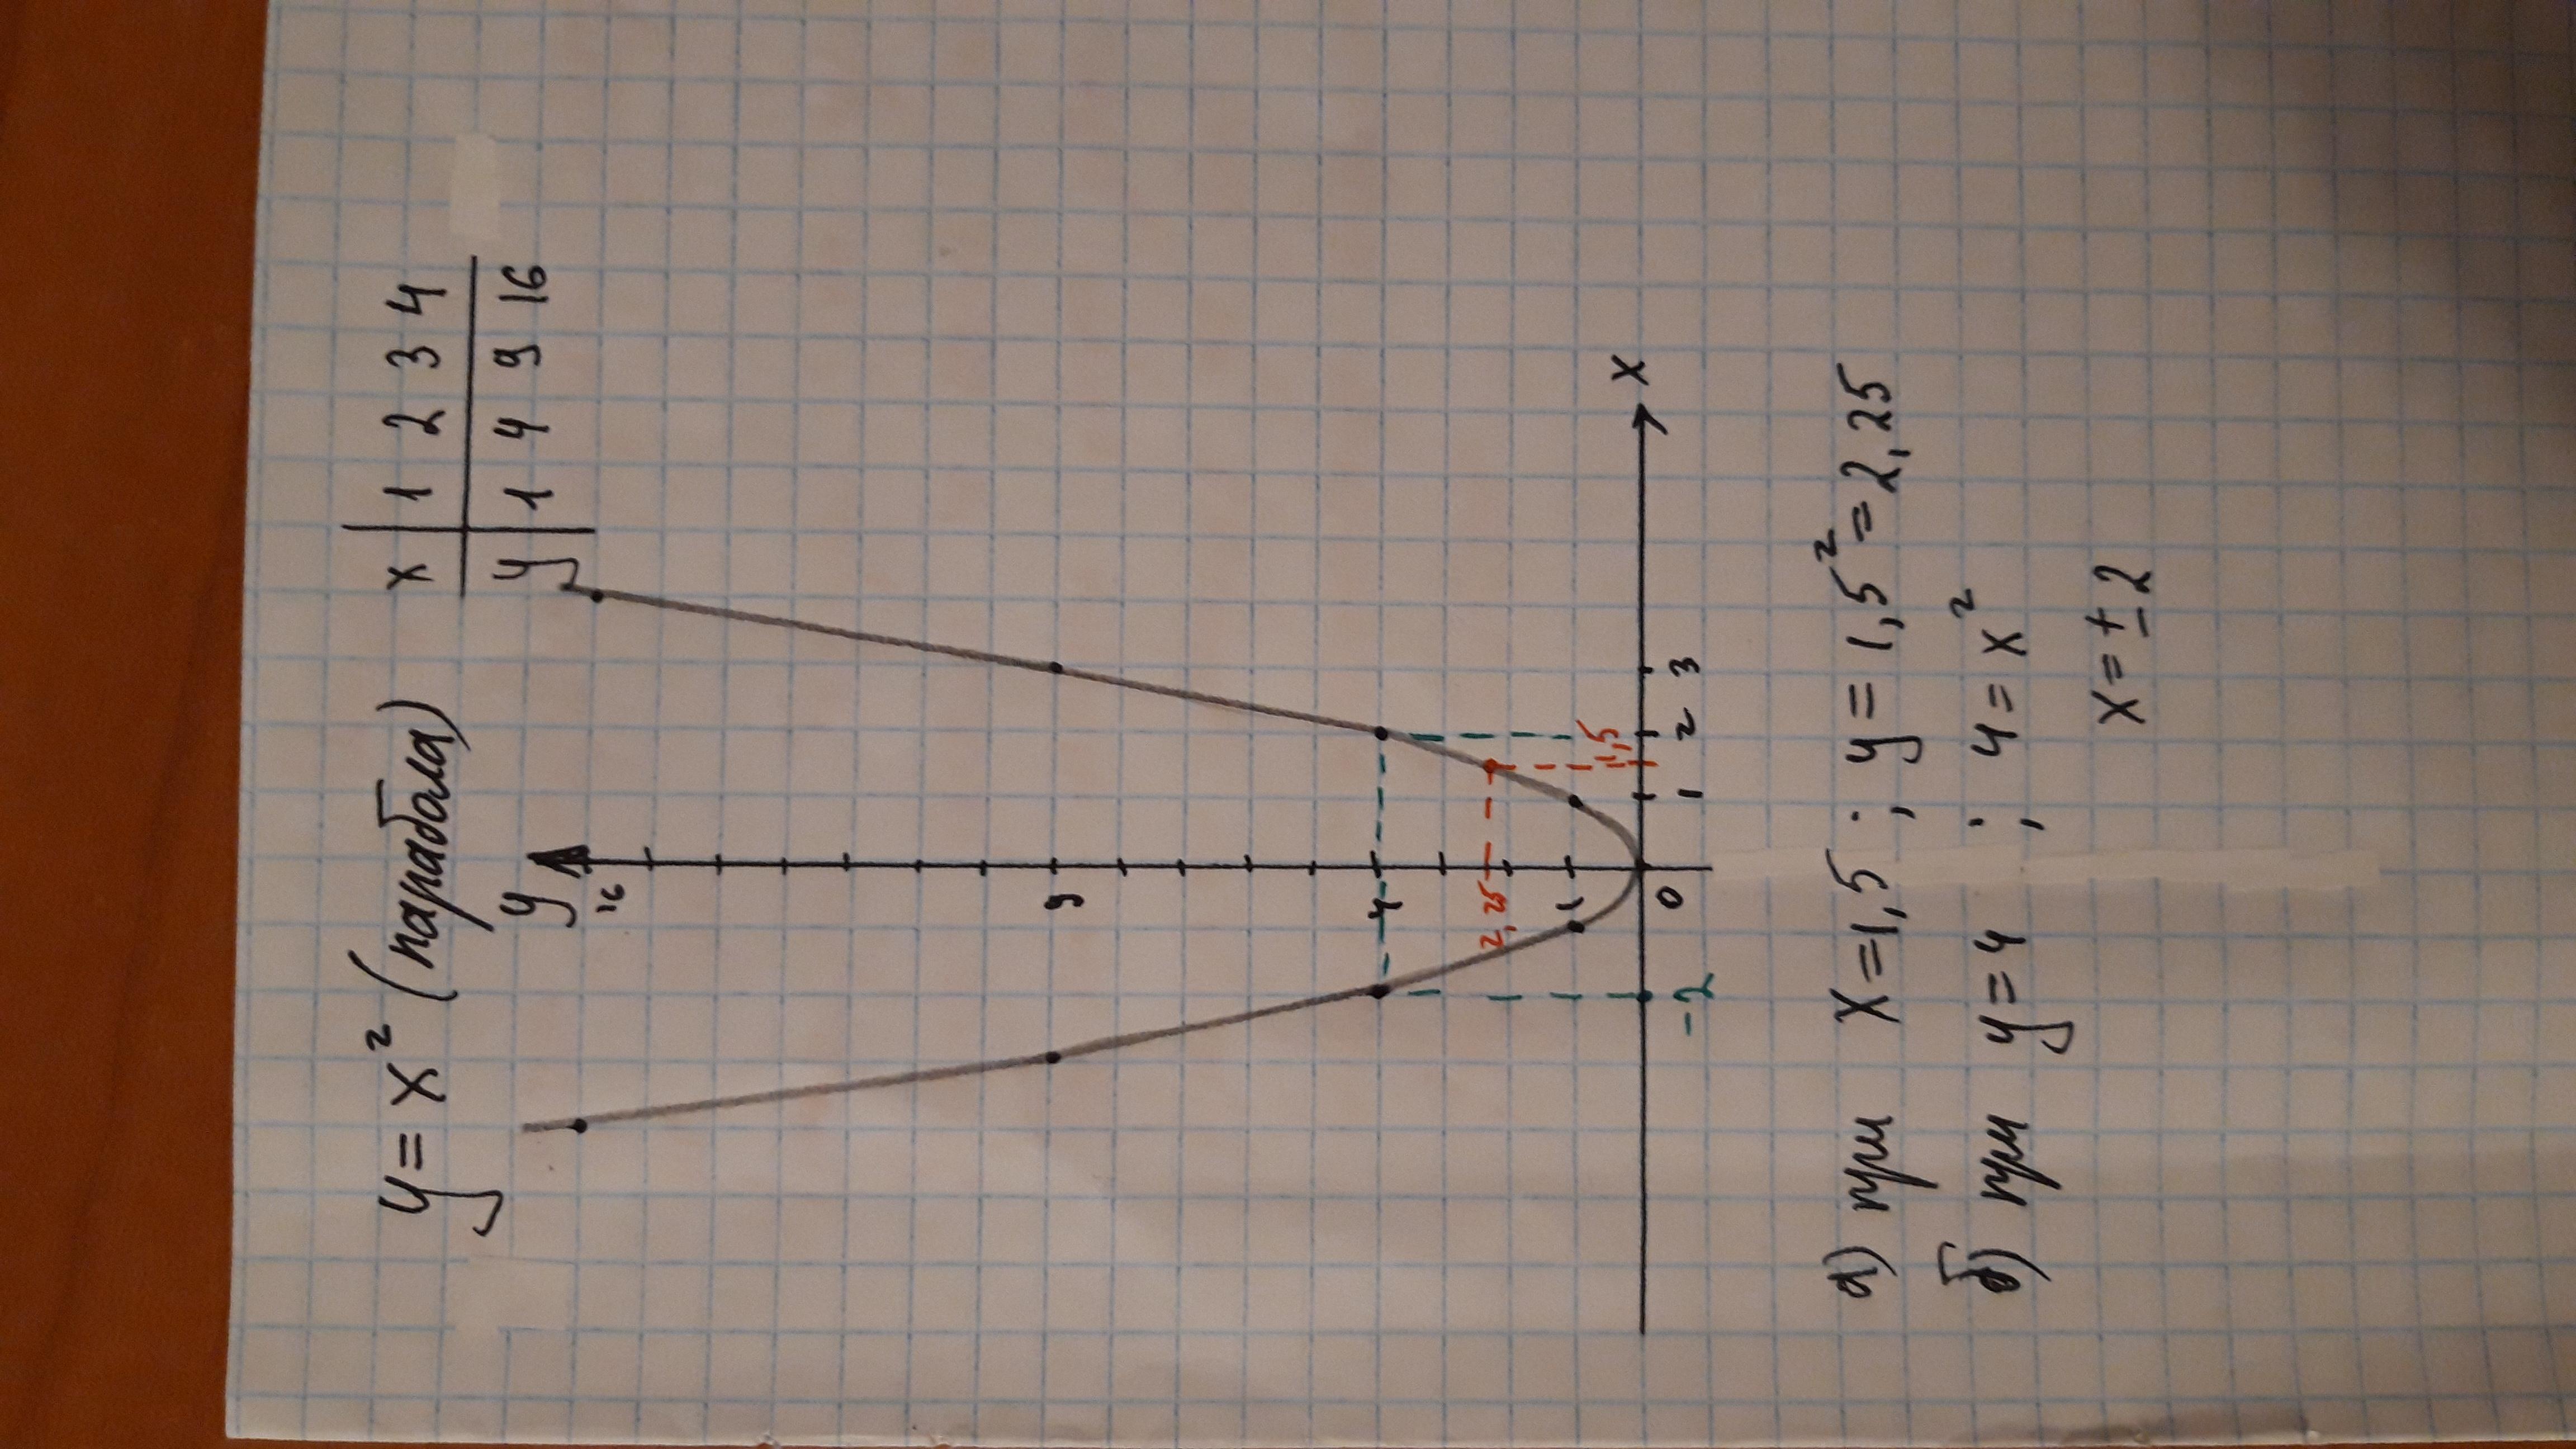 y = x² (парабола)
x | 1 2 3 4
y | 1 4 9 16
y
16
9
4
2,25
1
0
-2
1
1,5
2
3
x
а) при x = 1,5 ; y = 1,5² = 2,25
б) при y = 4 ; 4 = x²
x = ± 2